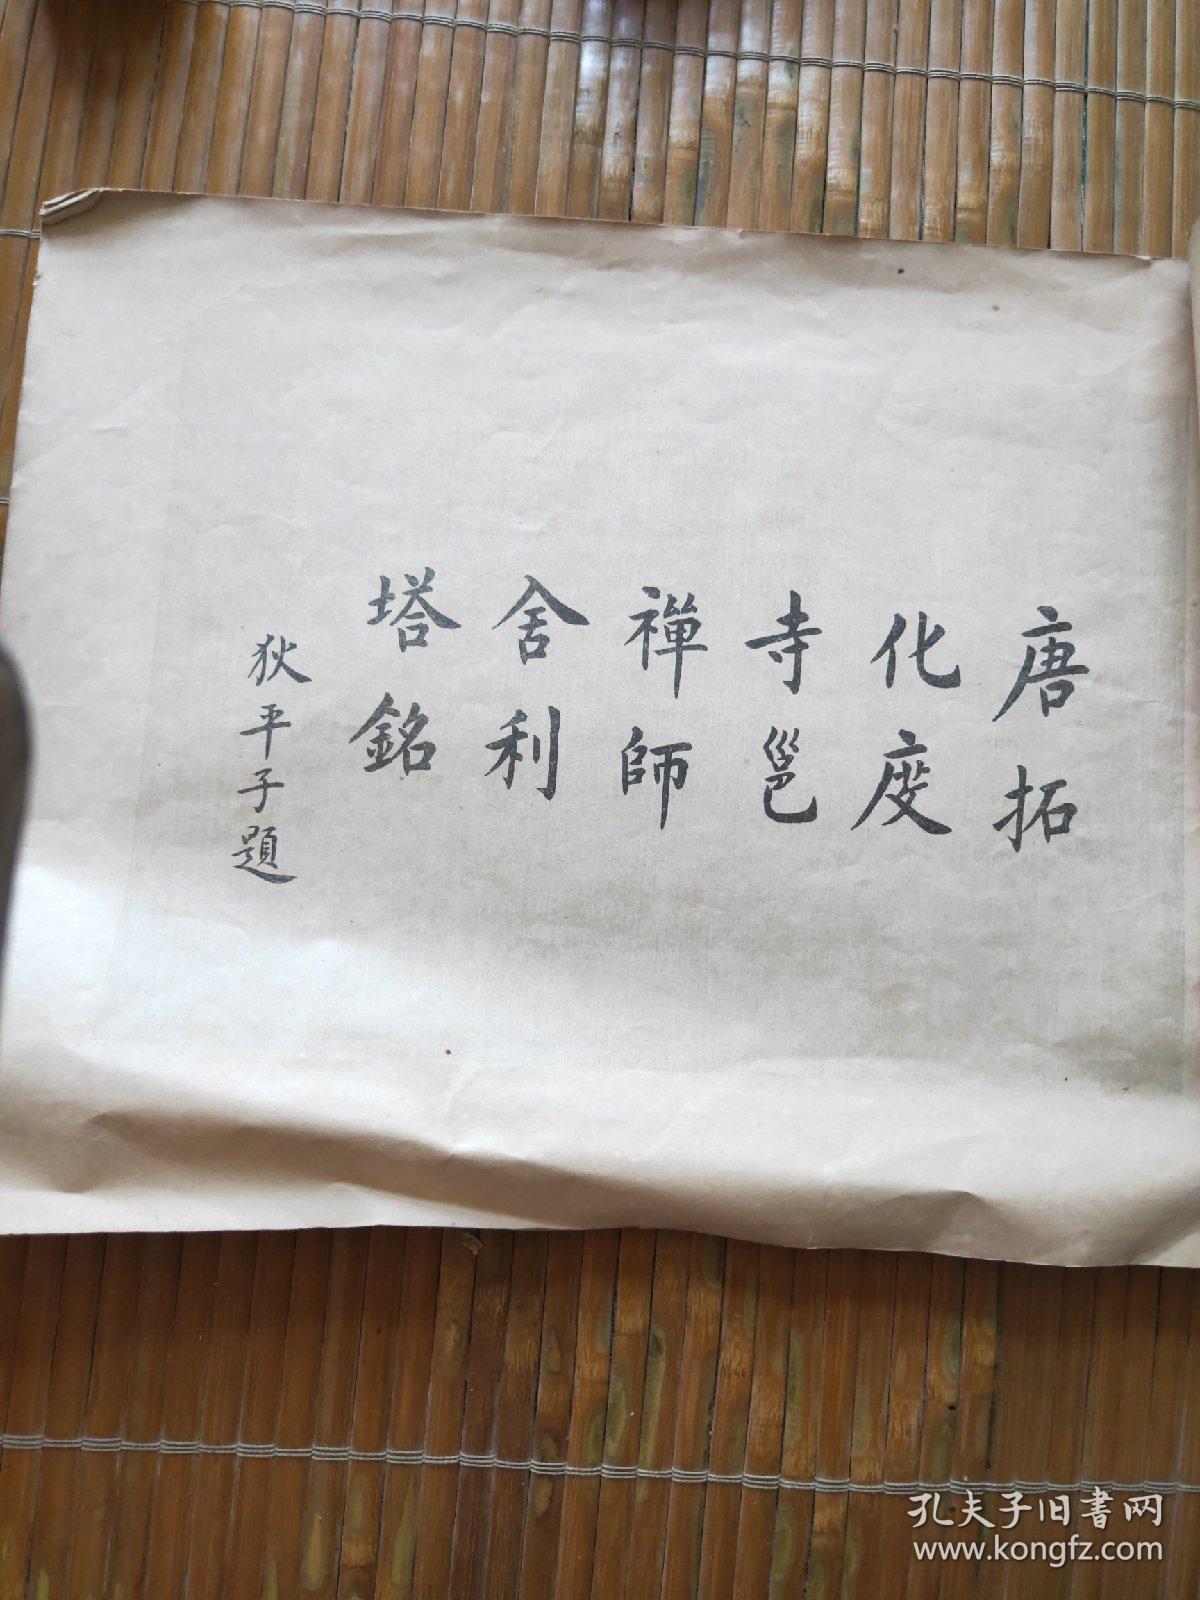 唐拓
化度
寺邕
禪師
舍利
塔銘
狄平子題
孔夫子旧書网
www.kongfz.com